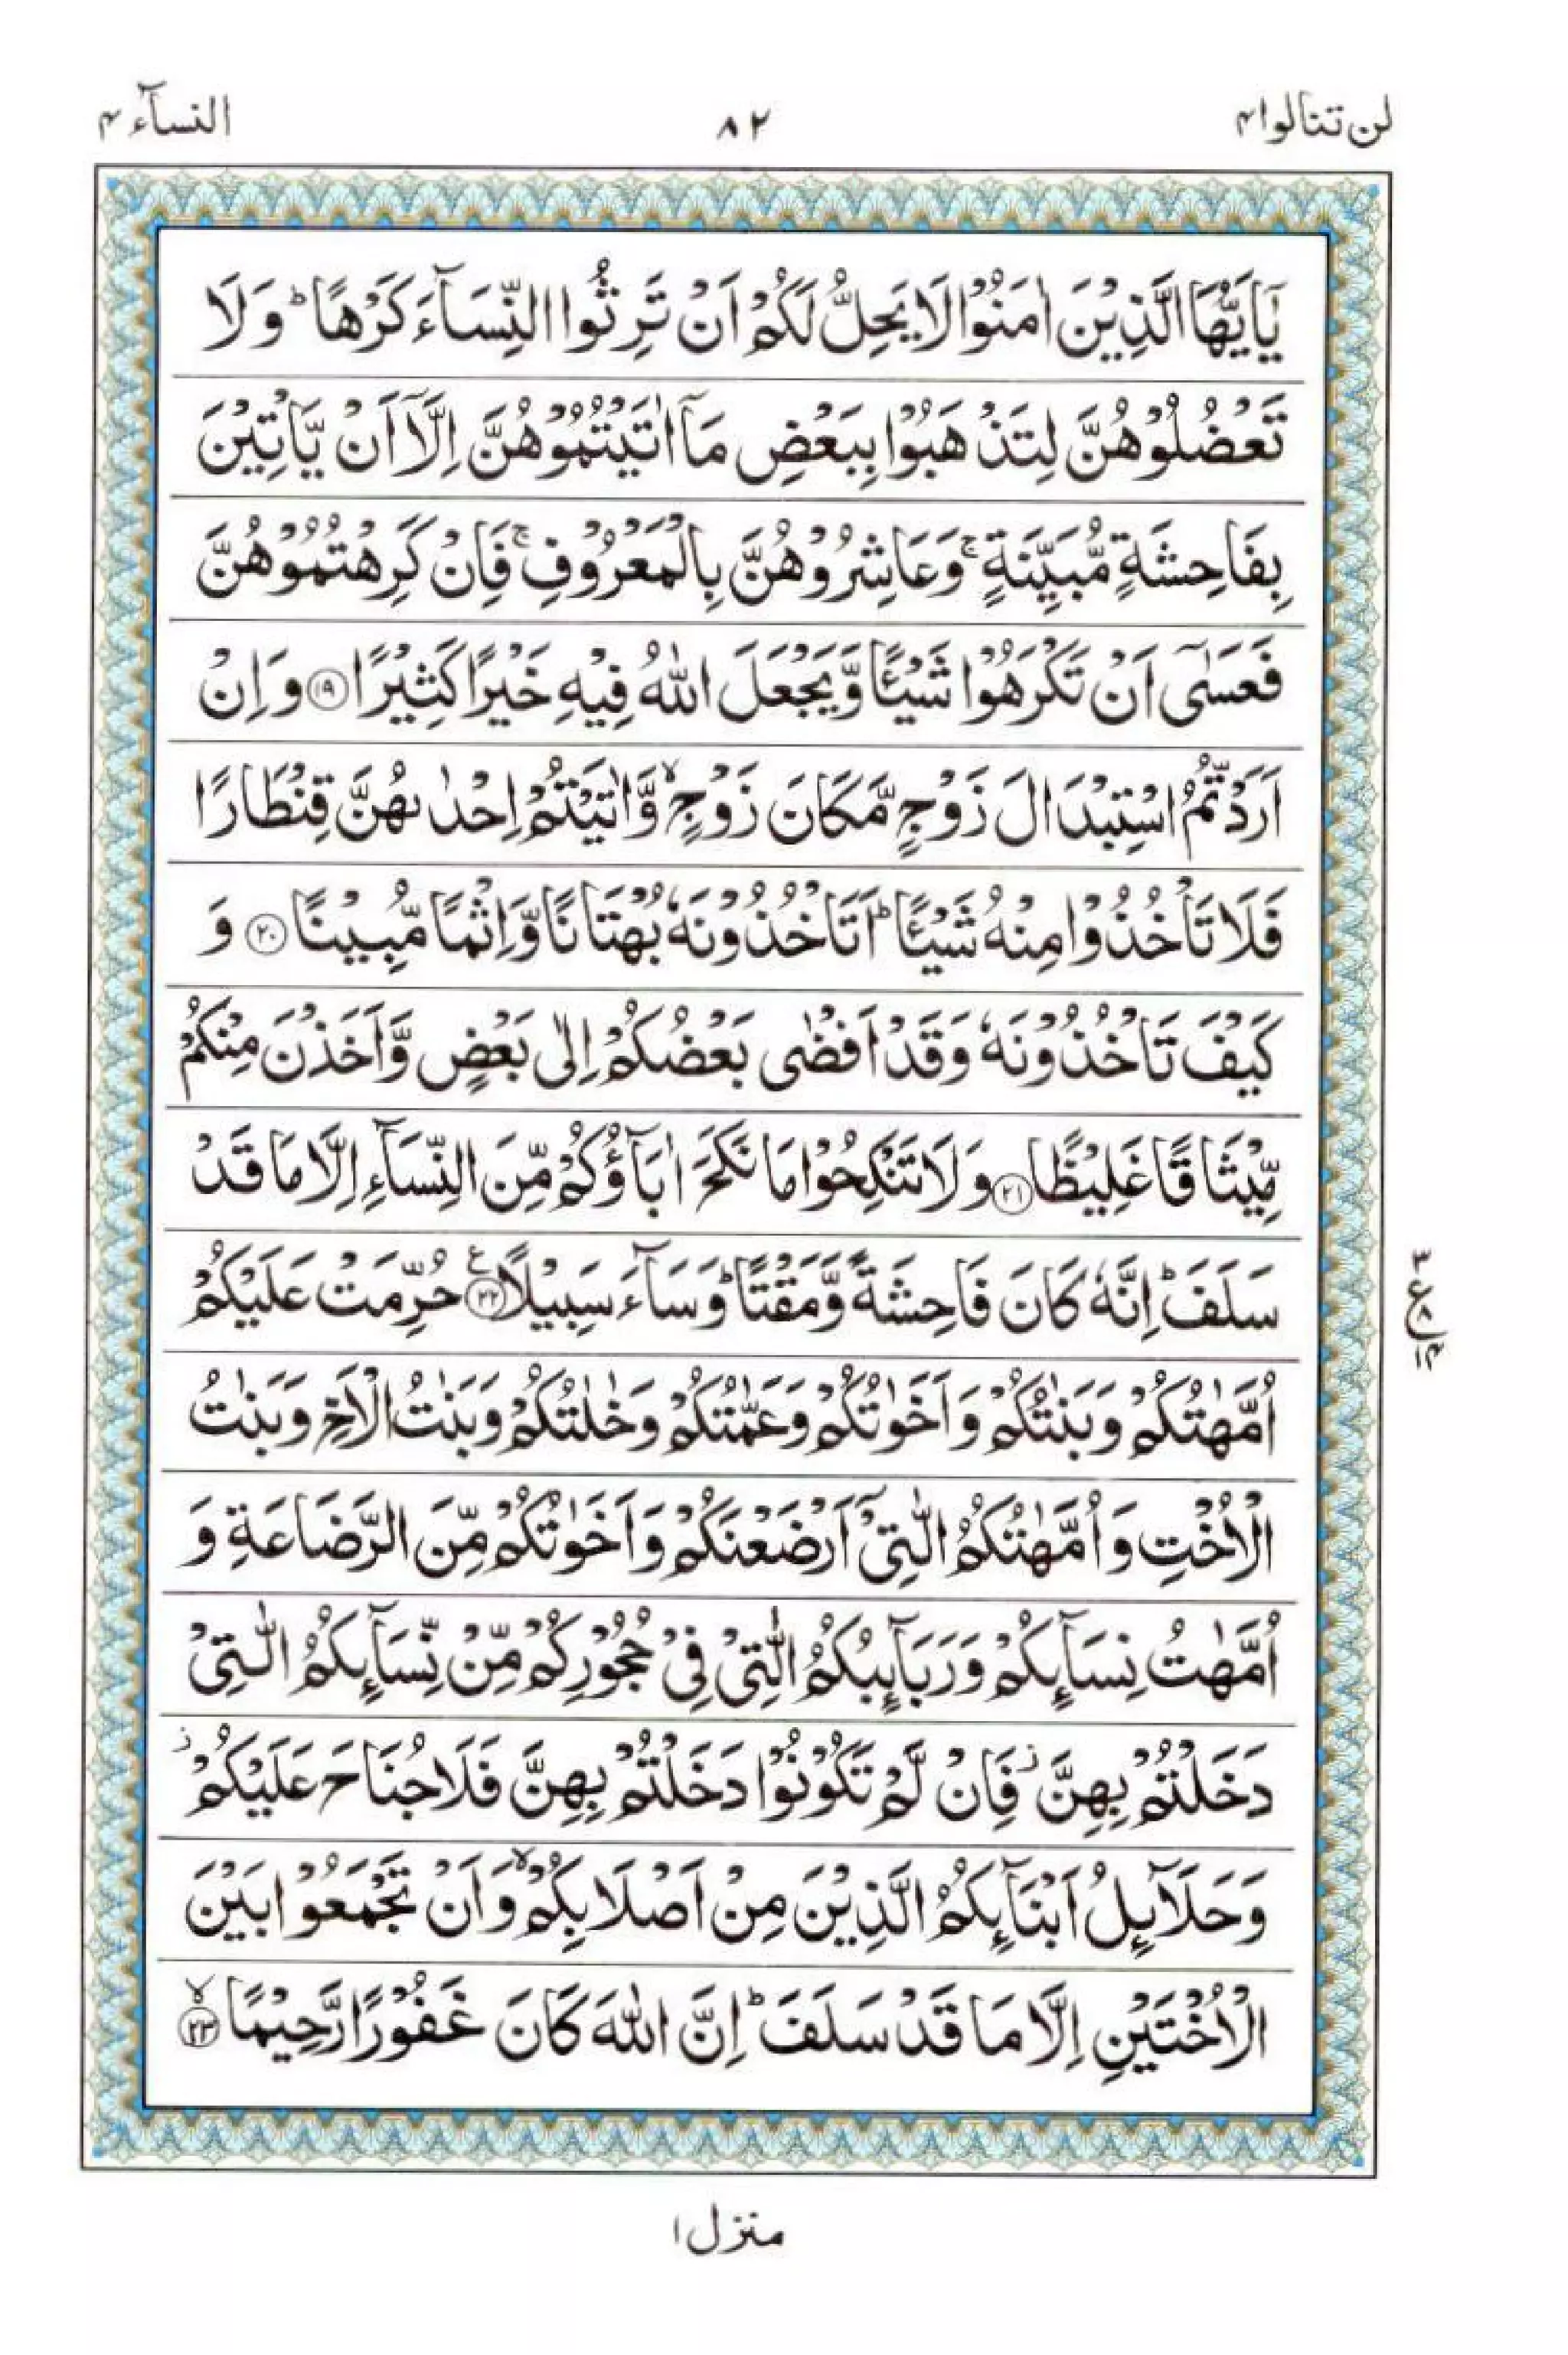 لن تنالوا ٤
٨٢
النسآء ٤
يٰۤاَيُّهَا الَّذِيْنَ اٰمَنُوْا لَا يَحِلُّ لَكُمْ اَنْ تَرِثُوا النِّسَآءَ كَرْهًا ؕ وَلَا
تَعْضُلُوْهُنَّ لِتَذْهَبُوْا بِبَعْضِ مَاۤ اٰتَيْتُمُوْهُنَّ اِلَّاۤ اَنْ يَّاْتِيْنَ
بِفَاحِشَةٍ مُّبَيِّنَةٍ ۚ وَعَاشِرُوْهُنَّ بِالْمَعْرُوْفِ ۚ فَاِنْ كَرِهْتُمُوْهُنَّ
فَعَسٰۤى اَنْ تَكْرَهُوْا شَيْـًٔا وَّيَجْعَلَ اللّٰهُ فِيْهِ خَيْرًا كَثِيْرًا ۝١٩ وَاِنْ
اَرَدْتُّمُ اسْتِبْدَالَ زَوْجٍ مَّكَانَ زَوْجٍ ۙ وَّاٰتَيْتُمْ اِحْدٰىهُنَّ قِنْطَارًا
فَلَا تَاْخُذُوْا مِنْهُ شَيْـًٔا ؕ اَتَاْخُذُوْنَهٗ بُهْتَانًا وَّاِثْمًا مُّبِيْنًا ۝٢٠ وَ
كَيْفَ تَاْخُذُوْنَهٗ وَقَدْ اَفْضٰى بَعْضُكُمْ اِلٰى بَعْضٍ وَّاَخَذْنَ مِنْكُمْ
مِّيْثَاقًا غَلِيْظًا ۝٢١ وَلَا تَنْكِحُوْا مَا نَكَحَ اٰبَآؤُكُمْ مِّنَ النِّسَآءِ اِلَّا مَا قَدْ
سَلَفَ ؕ اِنَّهٗ كَانَ فَاحِشَةً وَّمَقْتًا ؕ وَسَآءَ سَبِيْلًا ۝٢٢ ع حُرِّمَتْ عَلَيْكُمْ
اُمَّهٰتُكُمْ وَبَنٰتُكُمْ وَاَخَوٰتُكُمْ وَعَمّٰتُكُمْ وَخٰلٰتُكُمْ وَبَنٰتُ الْاَخِ وَبَنٰتُ
الْاُخْتِ وَاُمَّهٰتُكُمُ الّٰتِيْۤ اَرْضَعْنَكُمْ وَاَخَوٰتُكُمْ مِّنَ الرَّضَاعَةِ وَ
اُمَّهٰتُ نِسَآىِٕكُمْ وَرَبَآىِٕبُكُمُ الّٰتِيْ فِيْ حُجُوْرِكُمْ مِّنْ نِّسَآىِٕكُمُ الّٰتِيْ
دَخَلْتُمْ بِهِنَّ ؗ فَاِنْ لَّمْ تَكُوْنُوْا دَخَلْتُمْ بِهِنَّ فَلَا جُنَاحَ عَلَيْكُمْ ؗ
وَحَلَآىِٕلُ اَبْنَآىِٕكُمُ الَّذِيْنَ مِنْ اَصْلَابِكُمْ ۙ وَاَنْ تَجْمَعُوْا بَيْنَ
الْاُخْتَيْنِ اِلَّا مَا قَدْ سَلَفَ ؕ اِنَّ اللّٰهَ كَانَ غَفُوْرًا رَّحِيْمًا ۙ۝٢٣
منزل ١